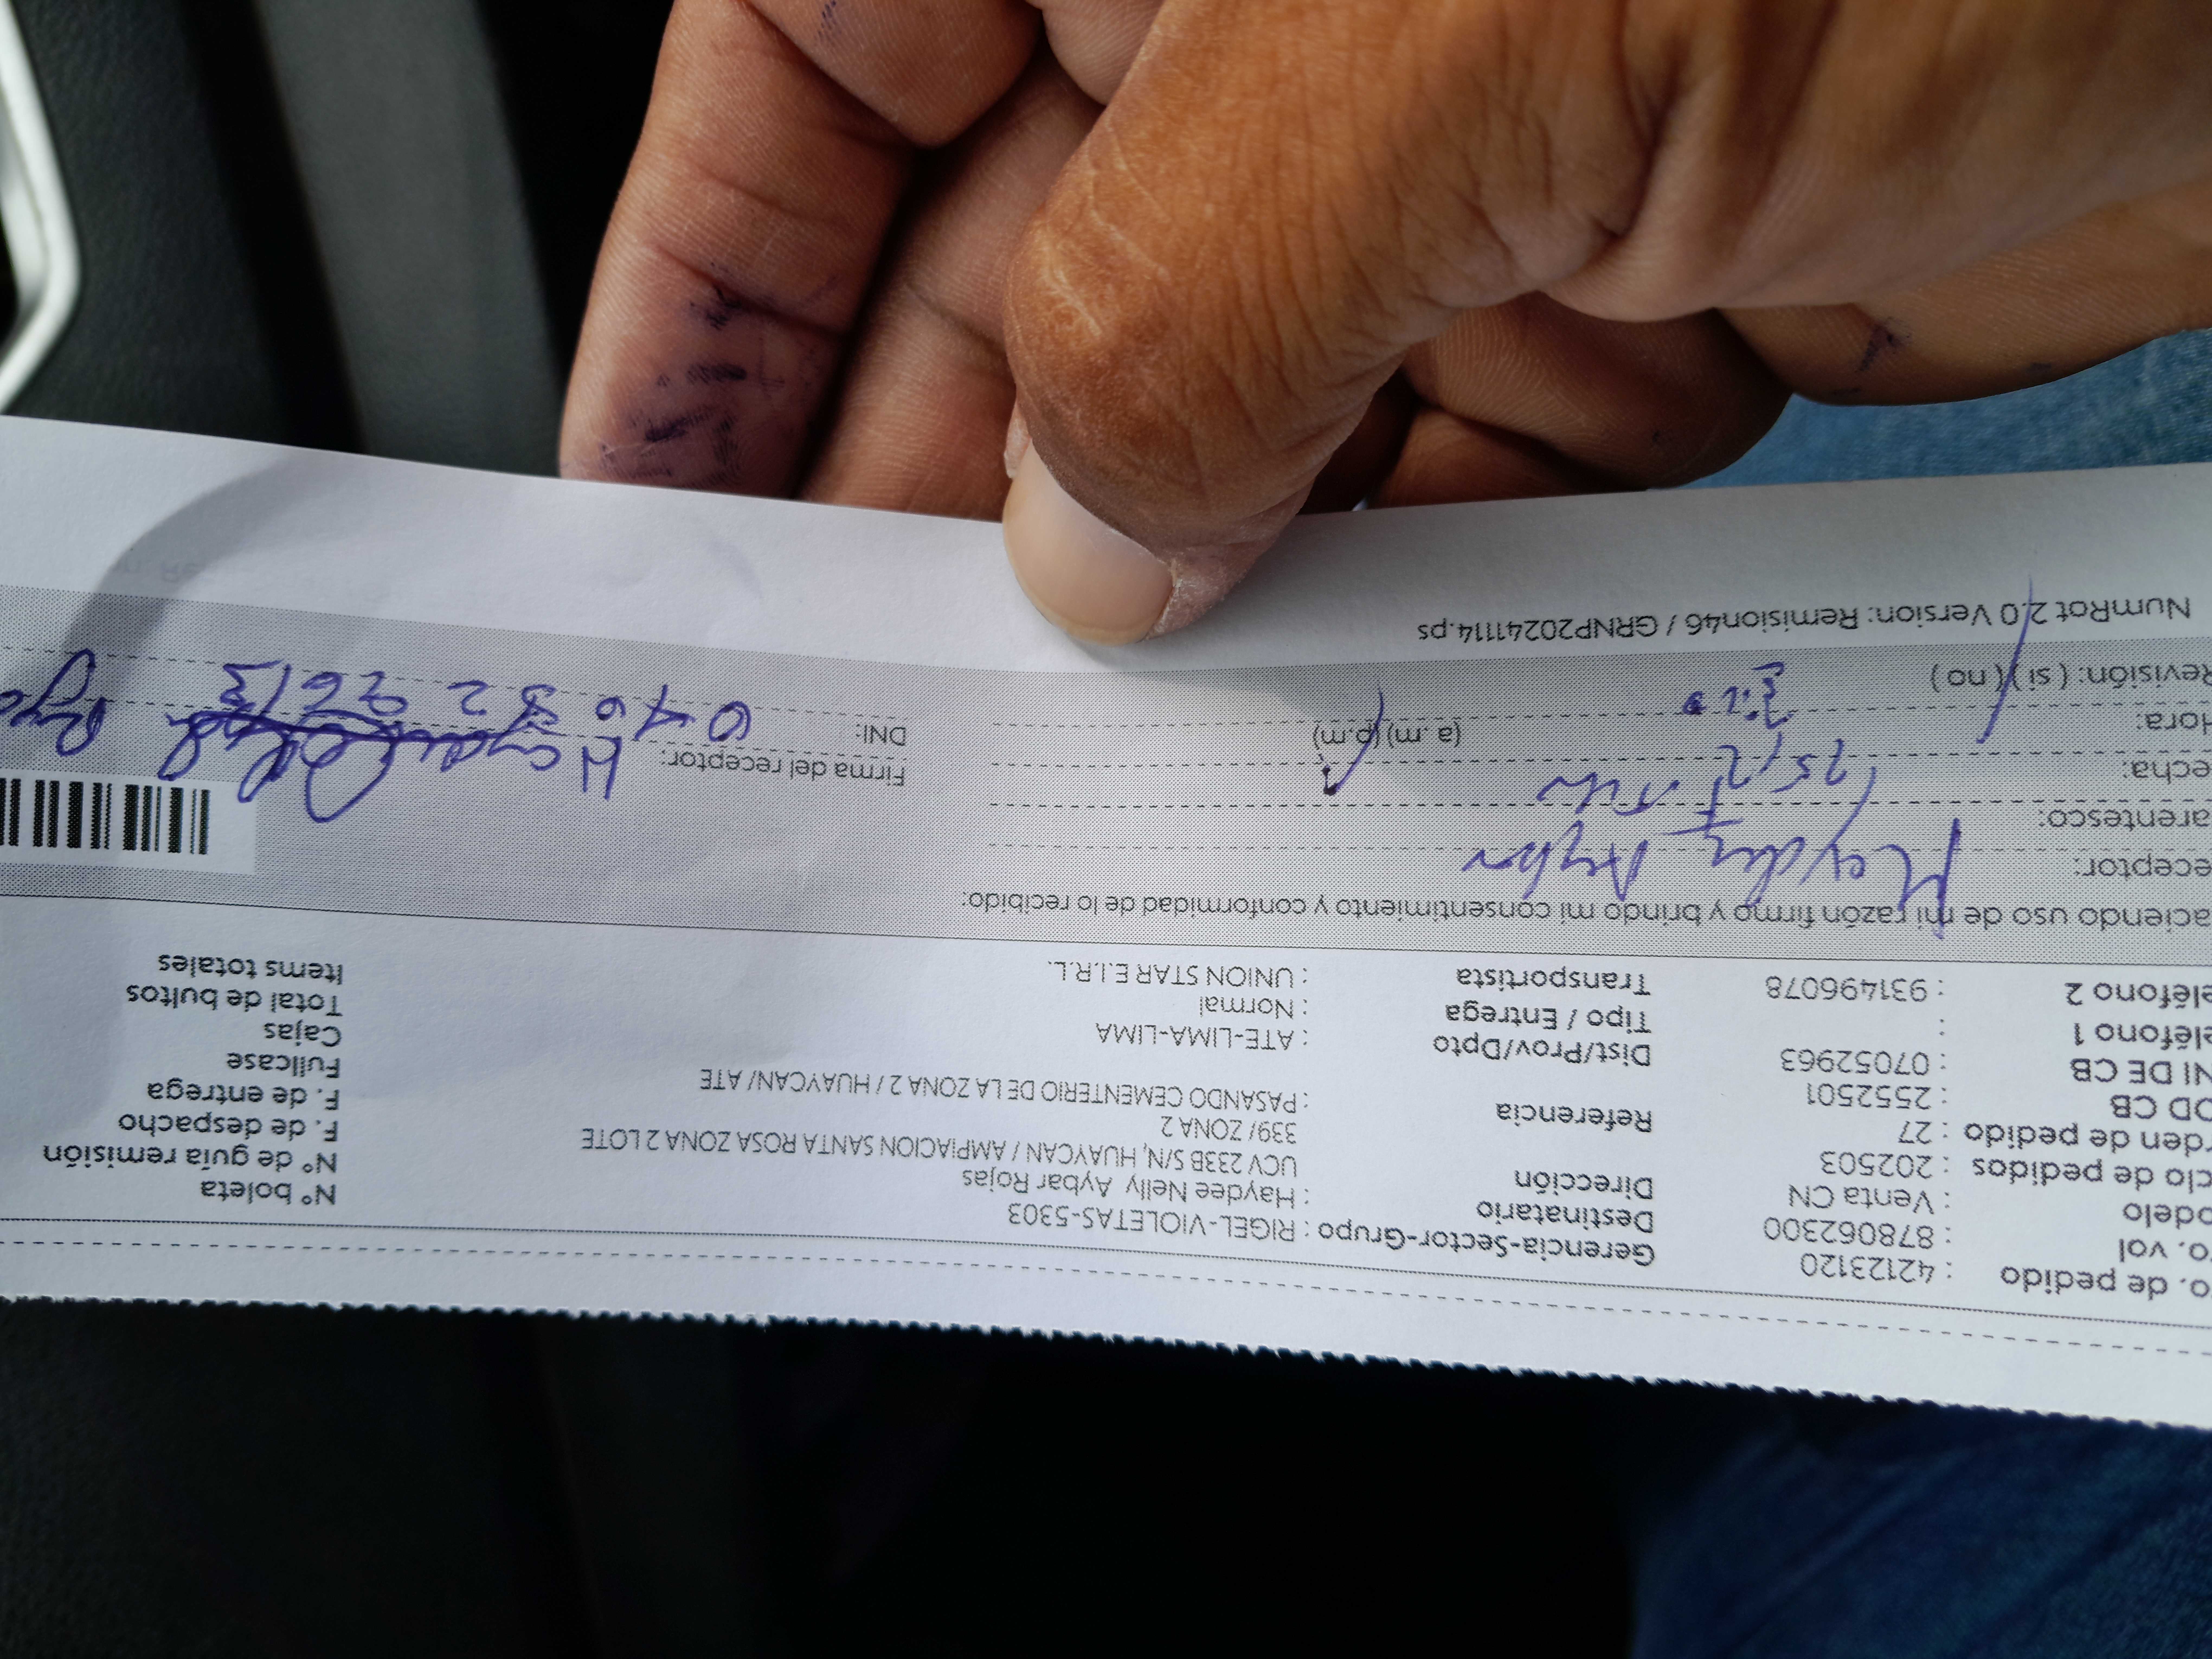 o. de pedido : 42123120 Gerencia-Sector-Grupo : RIGEL-VIOLETAS-5303 N° boleta
o. vol : 878062300 Destinatario : Haydee Nelly Aybar Rojas N° de guía remisión
odelo : Venta CN Dirección UCV 233B S/N, HUAYCAN / AMPIACION SANTA ROSA ZONA 2 LOTE F. de despacho
clo de pedidos : 202503 339/ ZONA 2 F. de entrega
rden de pedido : 27 Referencia : PASANDO CEMENTERIO DE LA ZONA 2 / HUAYCAN/ ATE Fullcase
OD CB : 2552501 Cajas
NI DE CB : 07052963 Dist/Prov/Dpto : ATE-LIMA-LIMA Total de bultos
eléfono 1 : Tipo / Entrega : Normal Items totales
eléfono 2 : 931496078 Transportista : UNION STAR E.I.R.L.
aciendo uso de mi razón firmo y brindo mi consentimiento y conformidad de lo recibido:
eceptor: Haydee Aybar
arentesco:
echa:
Hora: (a. m) (p.m) Firma del receptor:
Revisión: ( si ) ( no ) DNI:
NumRot 2.0 Version: Remision46 / GRNP20241114.ps